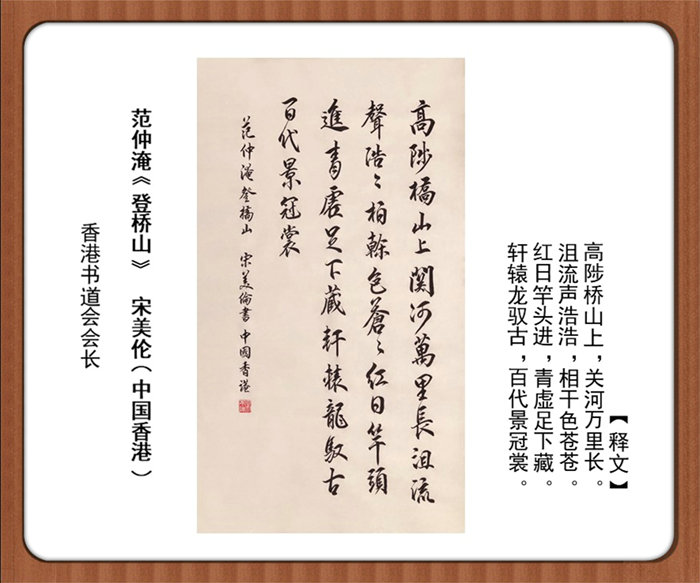 【释文】
高陟桥山上，关河万里长。
沮流声浩浩，相干色苍苍。
红日竿头进，青虚足下藏。
轩辕龙驭古，百代景冠裳。
高陟橋山上関河萬里長沮流
聲浩〻柏榦色蒼〻紅日竿頭
進青虛足下藏軒轅龍馭古
百代景冠裳
范仲淹登橋山 宋美倫書 中國香港
范仲淹《登桥山》 宋美伦（中国香港）
香港书道会会长